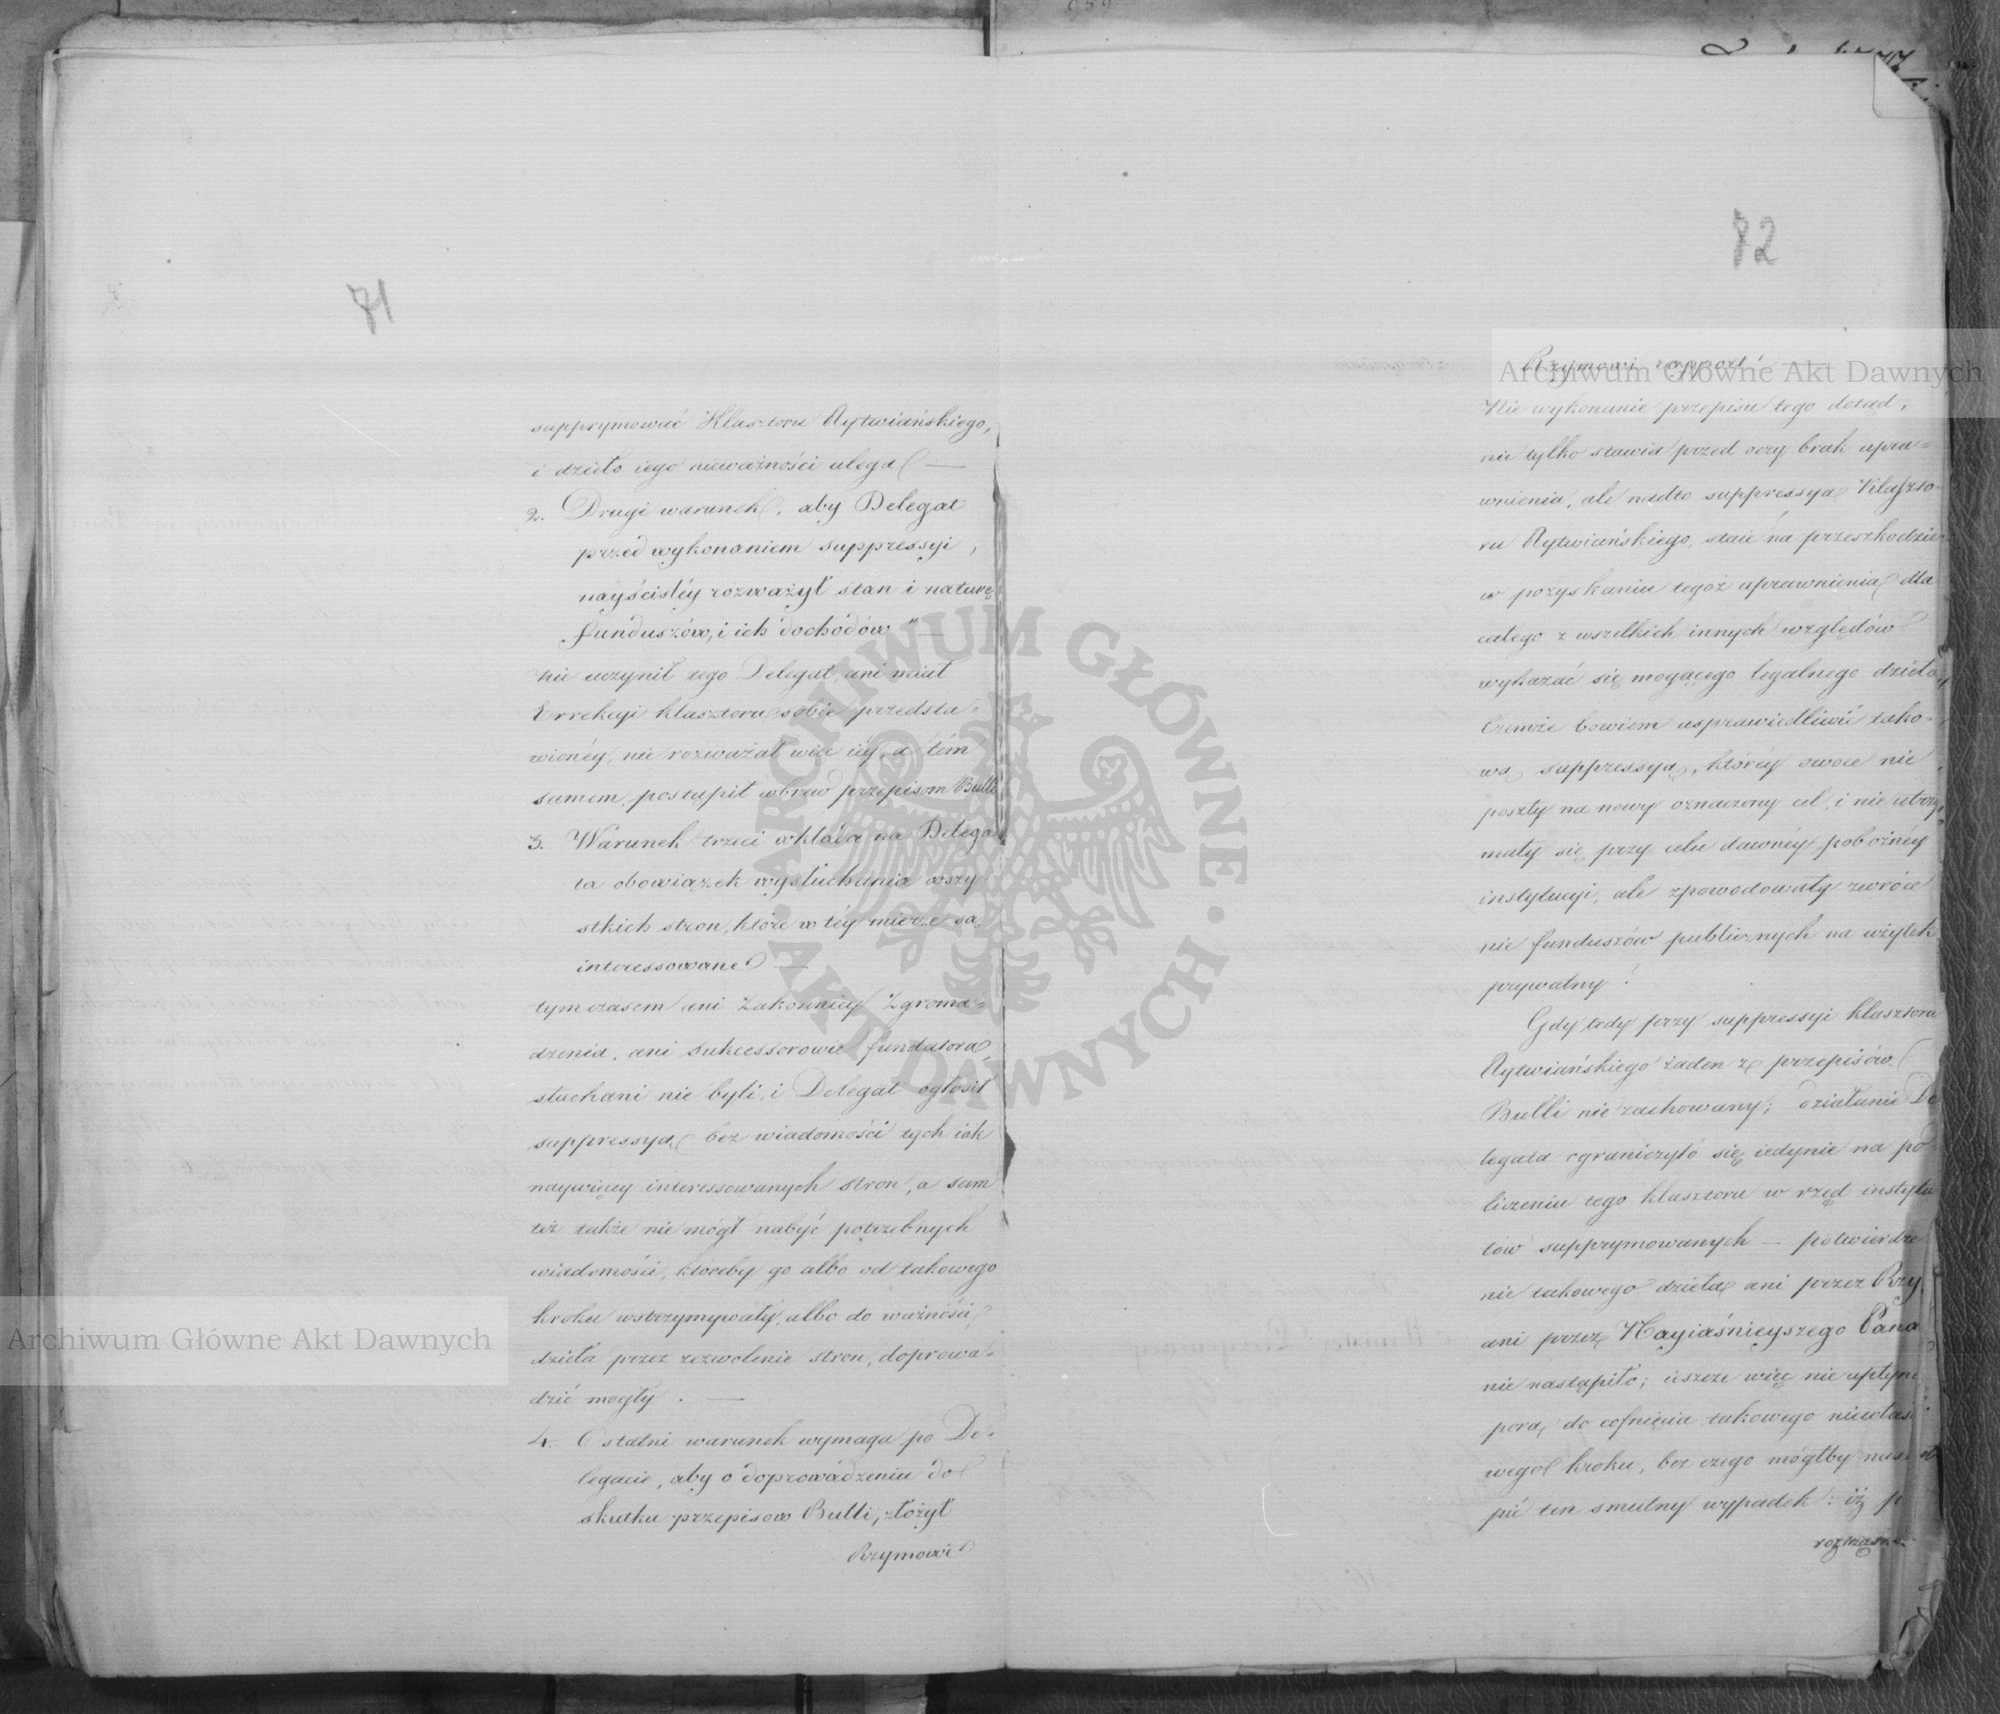 71
supprymować Klasztoru Rytwiańskiego,
i dzieło iego nieważności ulega —
2. Drugi warunek, aby Delegat
przed wykonaniem suppressyi,
nayściśléy rozważył stan i naturę
funduszów, i ich dochodów" —
Nie uczynił tego Delegat, ani miał
Errekcyi klasztoru sobie przedsta-
wionéy, nie rozważał więc iéy, a tém
samem, postąpił wbrew przepisom Bulli
3. Warunek trzeci wkłada na Delega
ta obowiązek wysłuchania wszy
stkich stron, które w téy mierze są
interessowane —
tymczasem ani Zakonnicy Zgroma-
dzenia, ani sukcessorowie fundatora,
słuchani nie byli, i Delegat ogłosił
suppressyą bez wiadomości tych iak
naywięcy interessowanych stron, a sam
też także nie mógł nabyć potrzebnych
wiadomości, któreby go albo od takowego
kroku wstrzymywały, albo do ważności
dzieła przez zezwolenie stron, doprowa-
dzić mogły. —
4. Ostatni warunek wymaga po De-
legacie, aby o doprowadzeniu do
skutku przepisow Bulli, złożył
Rzymowi
82
Rzymowi rapport —
Nie wykonanie przepisu tego dotąd,
nie tylko stawia przed oczy brak upra-
wnienia, ale nadto suppressya Klaszto-
ru Rytwiańskiego, staie na przeszkodzie
w pozyskaniu tegoż uprawnienia dla
całego z wszelkich innych względów
wykazać się mogącego legalnego dzieła,
Czemże bowiem usprawiedliwić tako-
wą suppressyą, któréy owoce nie
poszły na nowy oznaczony cel, i nie utrzy
mały się przy celu dawnéy pobożnéy
instytucyi, ale zpowodowały zwróce
nie funduszów publicznych na użytek
prywatny?
Gdy tedy przy suppressyi klasztoru
Rytwiańskiego żaden z przepisów
Bulli nie zachowany; działanie De
legata ograniczyło się iedynie na po-
liczeniu tego klasztoru w rzęd instytu
tów supprymowanych — potwierdze
nie takowego dzieła ani przez Rzy
ani przez Nayiaśnieyszego Pana
nie nastąpiło; ieszcze więc nie upłynę
pora do cofnięcia takowego niewłaś
wego kroku, bez czego mógłby nas
pić ten smutny wypadek: iż p
Archiwum Główne Akt Dawnych
Archiwum Główne Akt Dawnych
· ARCHIWUM GŁÓWNE · AKT DAWNYCH